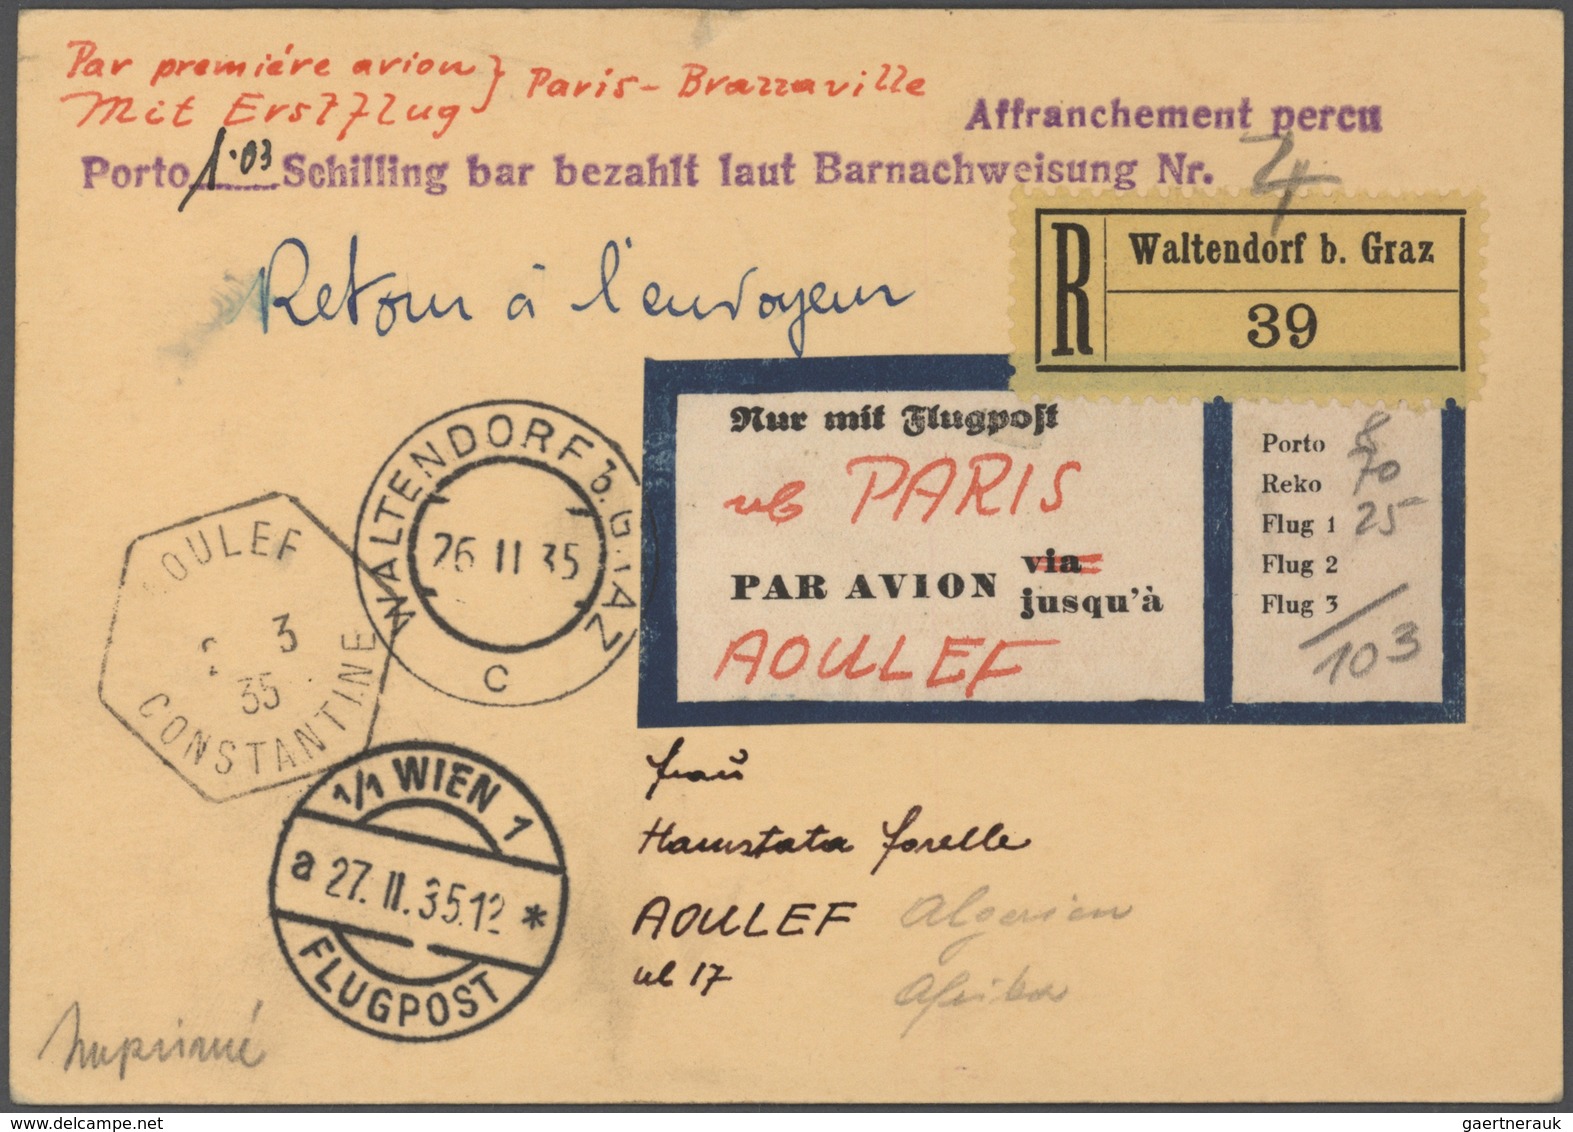 Par premiére avion } Paris - Brazzaville
Mit Erstflug
Affranchement percu
Porto 1.03 Schilling bar bezahlt laut Barnachweisung Nr. 4
Retour à l'envoyeur
R Waltendorf b. Graz
39
Nur mit Flugpost
ab PARIS
PAR AVION via
jusqu'à
AOULEF
Porto 8
Reko 70
Flug 1 25
Flug 2
Flug 3
103
WALTENDORF B. GRAZ
26 II 35
C
AOULEF
2 3
35
CONSTANTINE
1/1 WIEN 1
a 27.II.35.12 *
FLUGPOST
Frau
Hamstata Forelle
AOULEF Algerien
Afrika
ub 17
Imprimé
gaertnerauk
www.delcampe.net